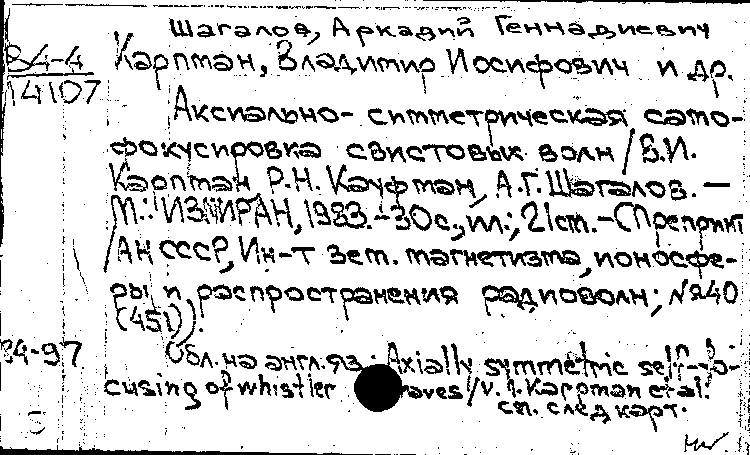 Шагалов, Аркадий Геннадиевич
84-4
14107
Карпман, Владимир Иосифович и др.
Аксиально-симметрическая само-
фокусировка свистовых волн / В.И.
Карпман, Р.Н. Кауфман, А.Г. Шагалов. —
М.: ИЗМИРАН, 1983. - 30 с., ил.; 21 см. - (Препринт
/АН СССР, Ин-т зем. магнетизма, ионосфе-
ры и распространения радиоволн; № 40
(451)).
84-97
Обл. на англ. яз.: Axially symmetric self-fo-
cusing of whistler waves / V.I. Karpman et al.
см. след карт.